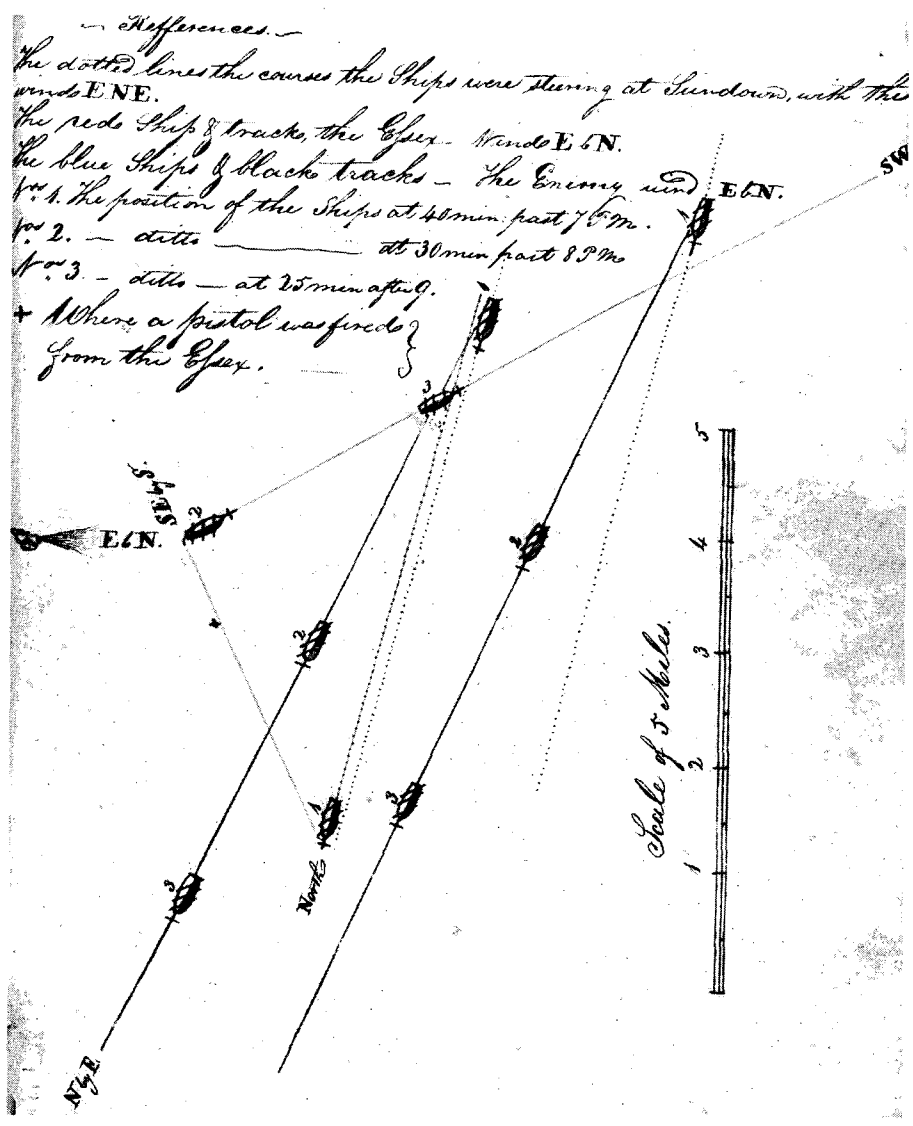 Refferences.
The dotted lines the courses the Ships were steering at Sundown, with the
wind ENE.
The red Ship & track, the Essex - Wind E b N.
The blue Ships & black tracks - The Enemy wind E b N.
Nos 1. The position of the Ships at 40 min. past 7 P M.
Nos 2. - ditto - at 30 min past 8 P M
Nos 3 - ditto - at 25 min after 9.
+ Where a pistol was fired
from the Essex.
SW
1
3
SE by S.
2
E b N.
2
2
1
3
3
North
N by E
Scale of 5 Miles
5
4
3
2
1